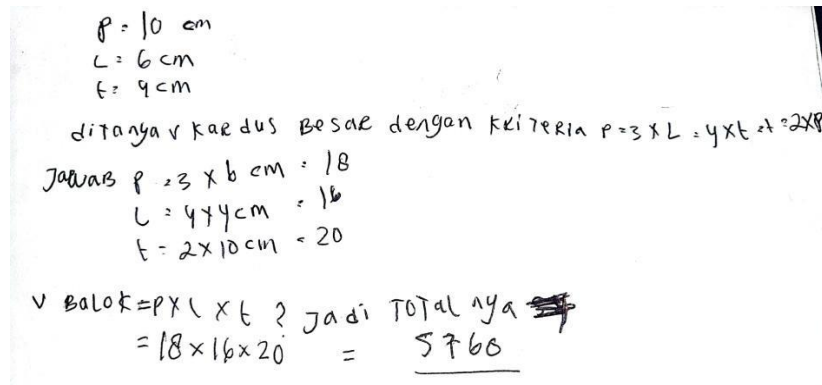 P = 10 cm
L = 6 cm
t = 4 cm
ditanya v kardus Besar dengan kriteria P = 3 x L = 4 x t = t = 2 x P
Jawab P = 3 x 6 cm = 18
L = 4 x 4 cm = 16
t = 2 x 10 cm = 20
V Balok = P x L x t ? Jadi Total nya
= 18 x 16 x 20 = 5760